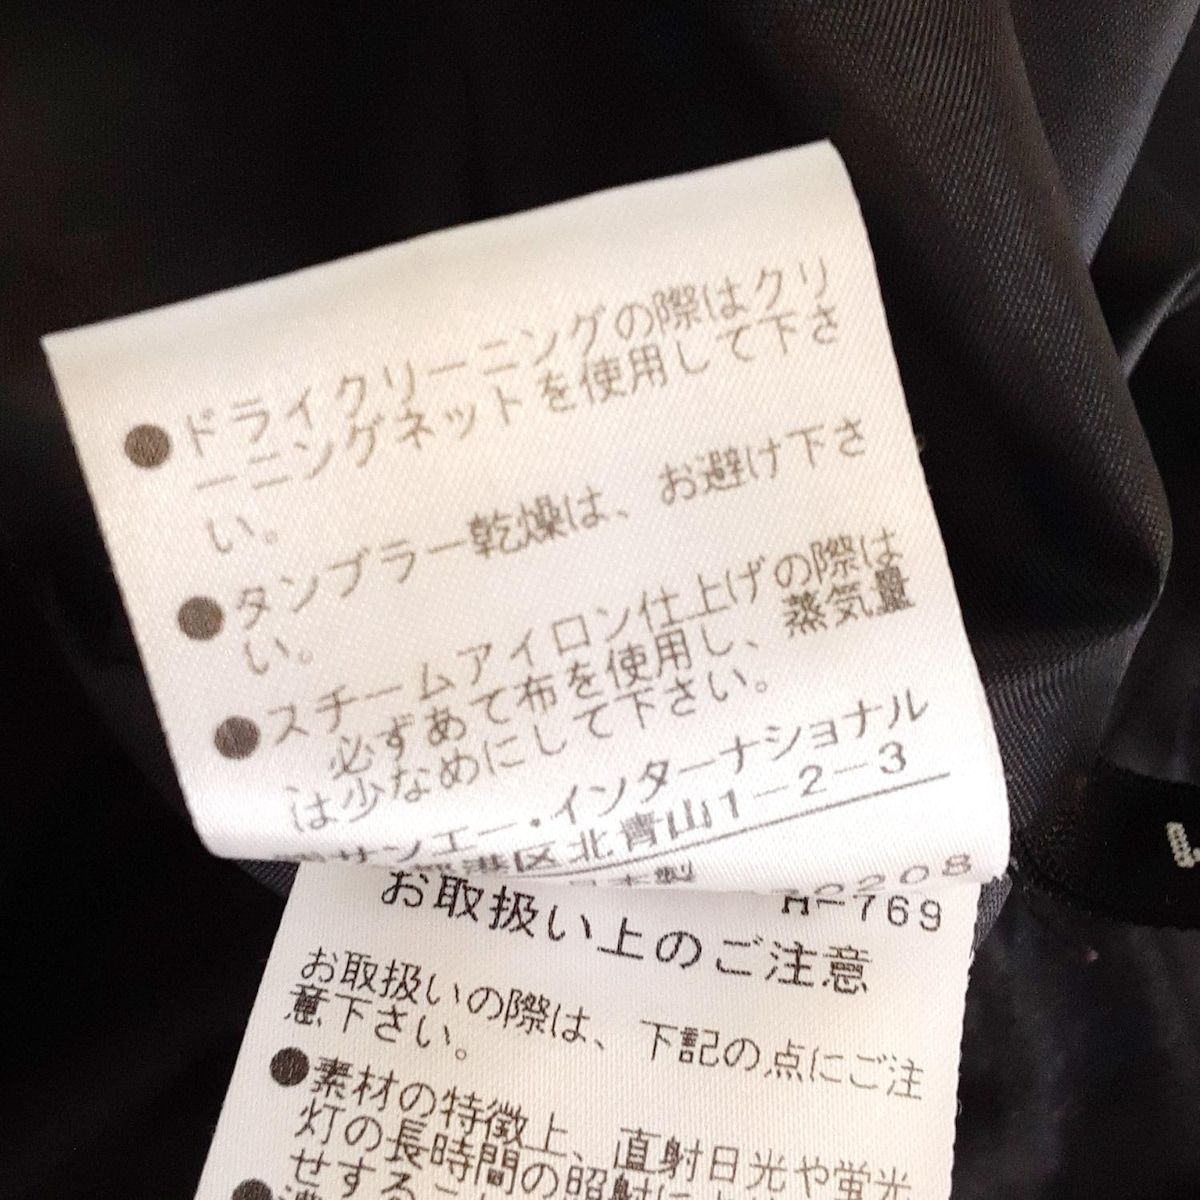 ●ドライクリーニングの際はクリ
ーニングネットを使用して下さ
い。
●タンブラー乾燥は、お避け下さ
い。
●スチームアイロン仕上げの際は
必ずあて布を使用し、蒸気量
は少なめにして下さい。
サンエー・インターナショナル
港区北青山1-2-3
H-769
お取扱い上のご注意
お取扱いの際は、下記の点にご注
意下さい。
●素材の特徴上、直射日光や蛍光
灯の長時間の照射に
せする